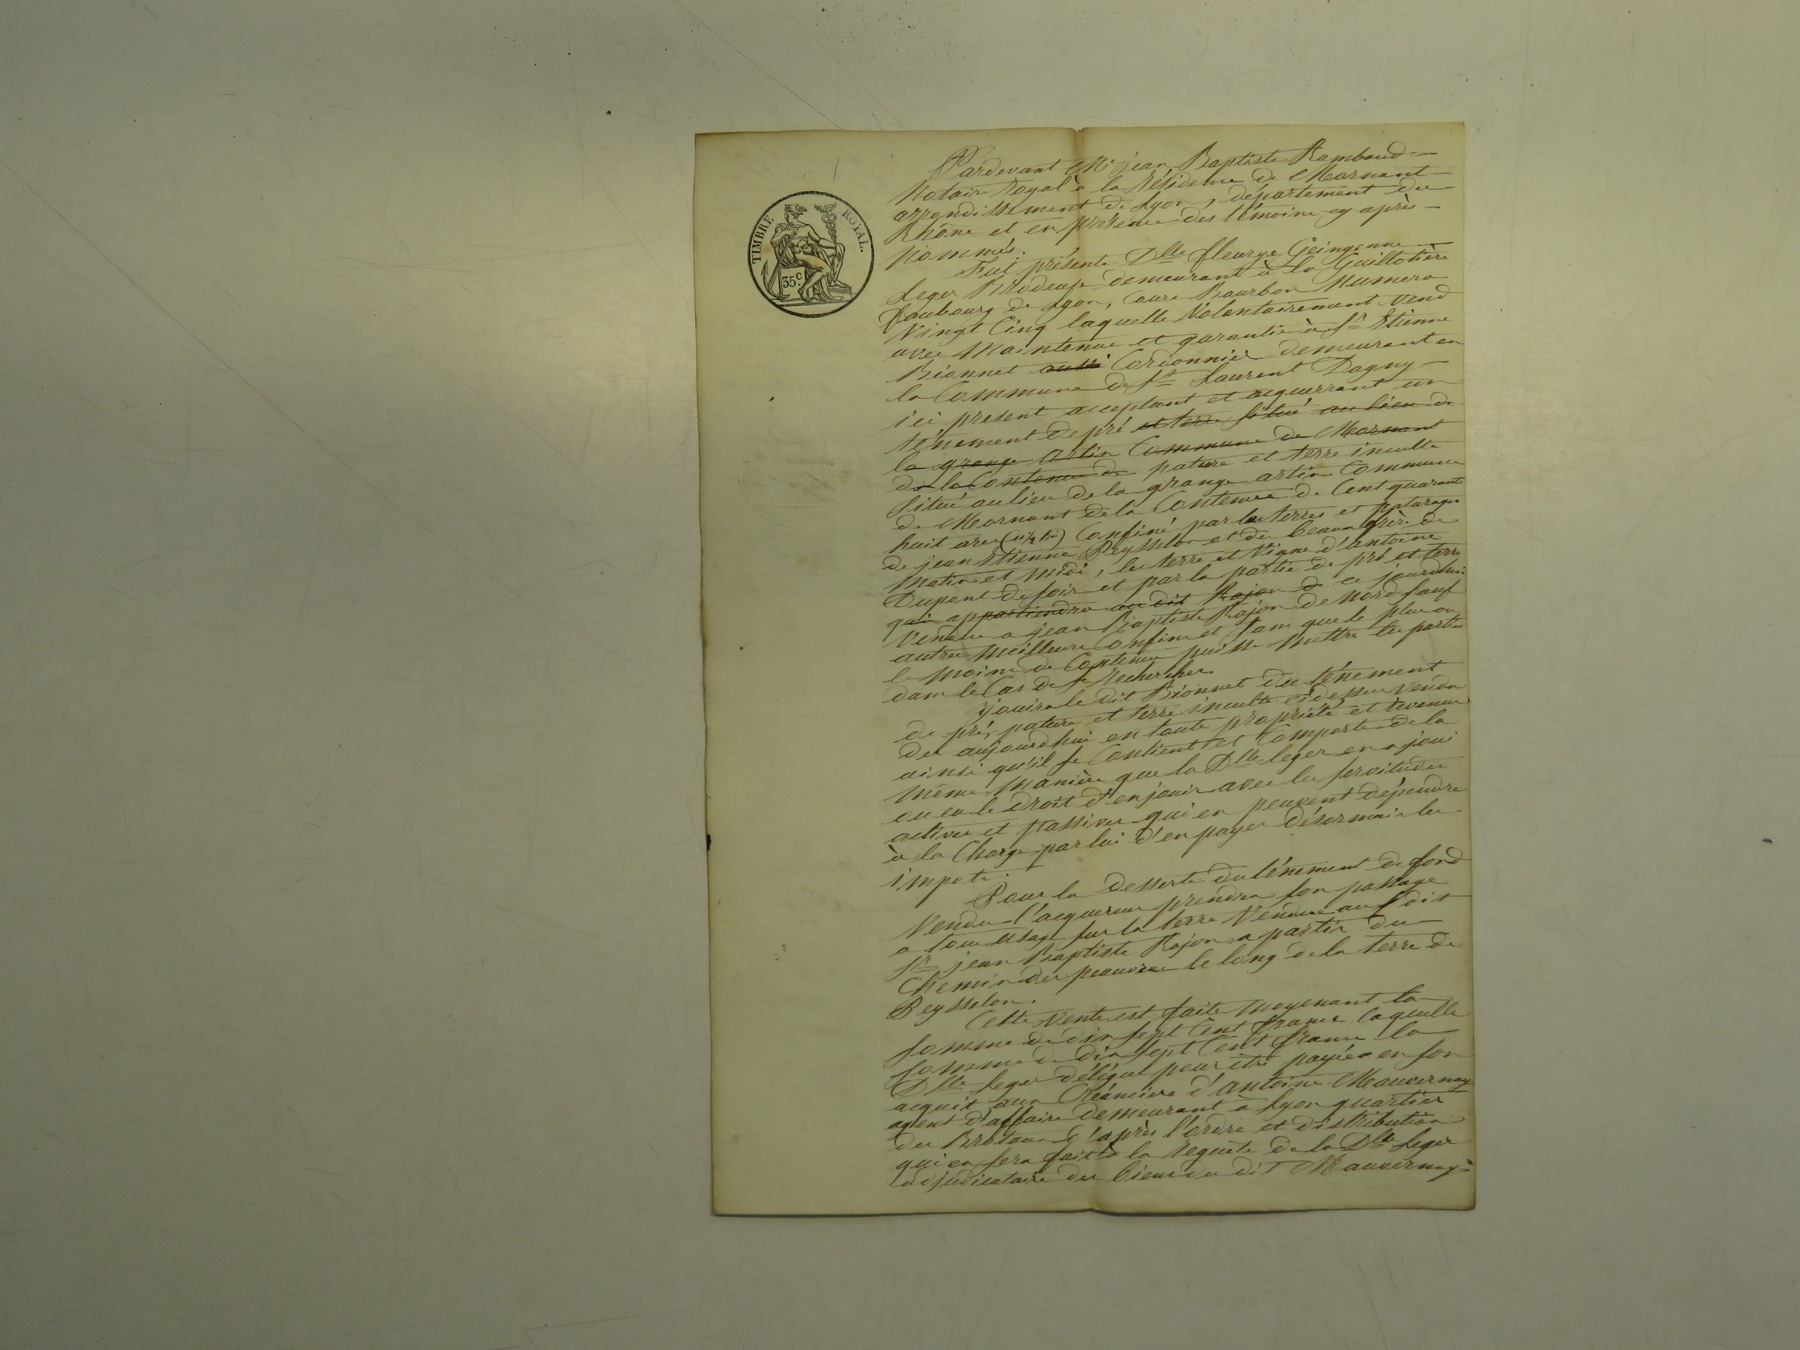 TIMBRE ROYAL.
35c.
Pardevant Me jean Baptiste Rambaud
Notaire Royal à la Résidence de Mornant
arrondissement de Lyon, département du
Rhône et en présence des témoins cy après
nommés.
Fut présente Dlle fleurye
Leger Brodeuse demeurant à la Guillotière
faubourg de Lyon, Cours Bourbon Numero
Vingt Cinq laquelle Volontairement vend
avec Maintenue et garantie à Sr Etienne
Bionnet Cordonnier demeurant en
la Commune de St Laurent Dagny
ici present acceptant et acquerrant un
ténement de pré et terre situé au lieu de
la grange artin Commune de Mornant
de la Contenue de pature et terre inculte
situé au lieu de la grange artin Commune
de Mornant de la Contenue de Cent quarant
huit ares Confiné par les terres et paturages
de jean Etienne Peysselon et du beaux frère de
Matin et Midi, les terre et Vigne d'antoine
Dupont de soir et par la partie de pré et terre
qui appartiendra au dit Rajon de ce jourdhui
Vendue a jean Baptiste Rajon de Nord Sauf
autres Meilleurs Confins et sans que le plus ou
le Moins de Contenue puisse Mettre les parties
dans le Cas de se Rechercher.
jouira le dit Bionnet du ténement
de pré, pature et terre inculte Cidessus vendu
des aujourdhui en toute propriété et revenus
ainsi qu'il se Contient et Comporte de la
Même Manière que la Dlle leger en a joui
ou eu le droit d'en jouir avec les servitudes
actives et passives qui en peuvent dépendre
à la Charge par lui d'en payer désormais les
impots.
Pour la desserte du ténement de fond
Vendu l'acquereur prendra son passage
a tous usages sur la terre Vendue au dit
Sr jean Baptiste Rajon a partir du
Chemin des peauvres le long de la terre de
Peysselon.
Cette Vente est faite Moyenant la
Somme de dix sept Cent francs laquelle
Somme de dix sept Cent francs la
Dlle Leger délégue pour être payée en son
acquit aux Créanciers d'antoine Mauvernay
agent d'affaire demeurant à Lyon quartier
des Brotaux d'après l'ordre et distribution
qui en sera fait à la requete de la Dlle Leger
adjudicataire des biens du dit Mauvernay